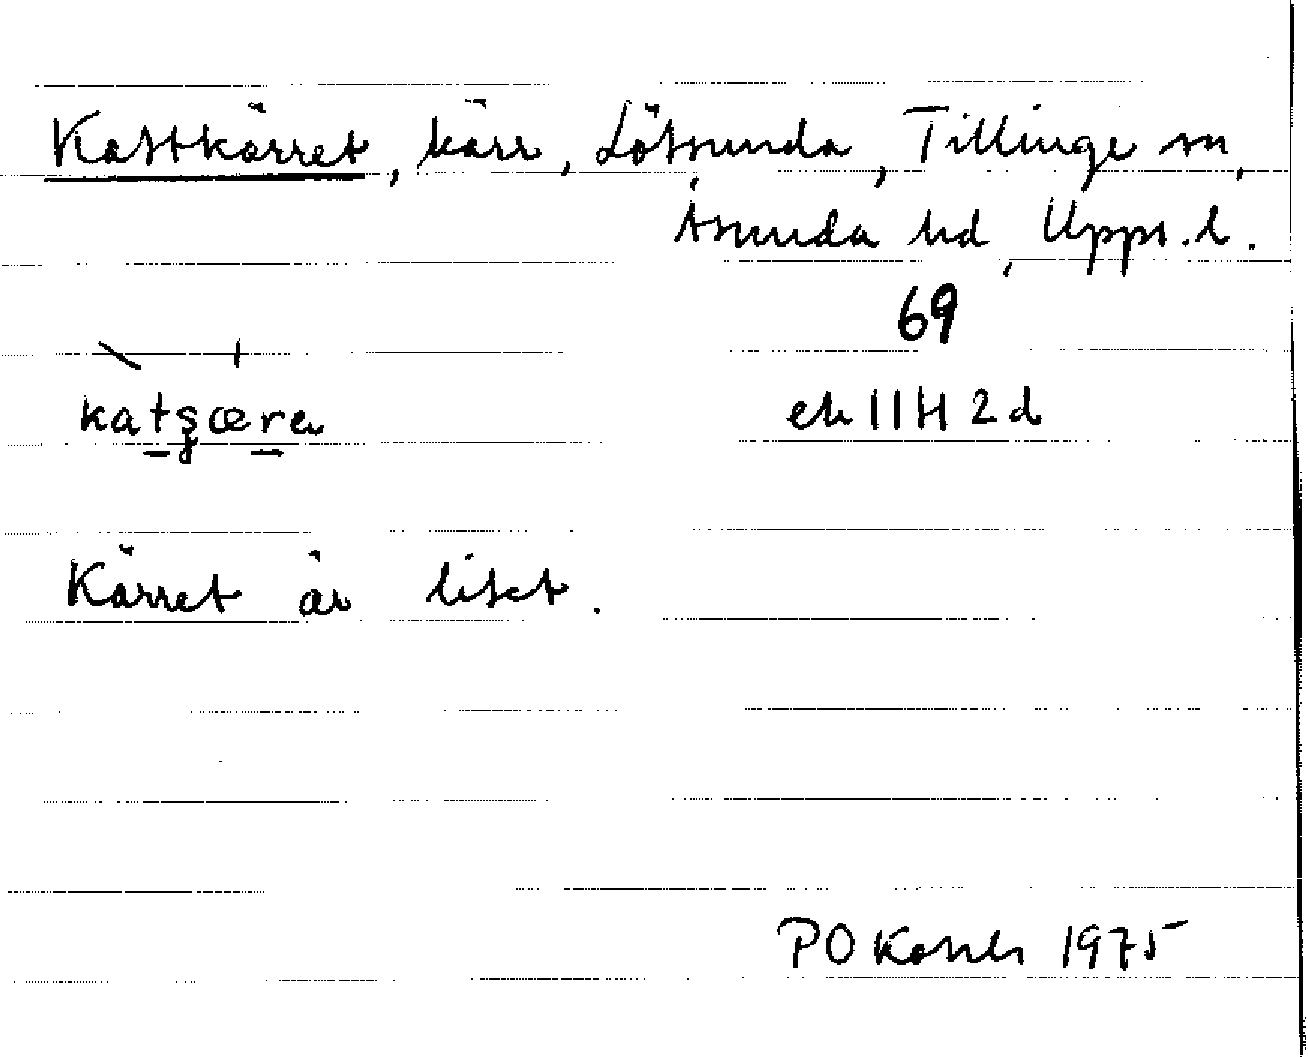 Kattkärret, kärr, Lötsunda, Tillinge sn,
Åsunda hd, Upps. l.
69
katşœra
ek 11H 2d
Kärret är litet.
PO 1975